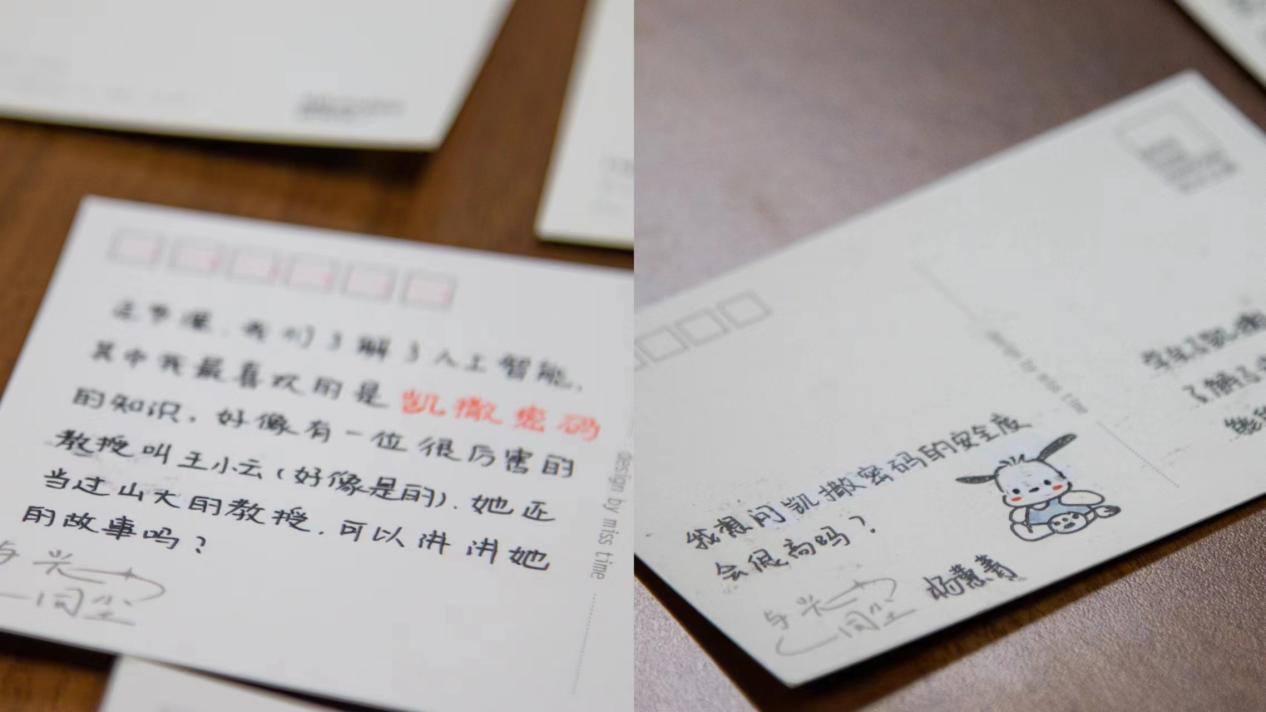 这节课，我们了解了人工智能，
其中我最喜欢的是凯撒密码
的知识，好像有一位很厉害的
教授叫王小云(好像是的)，她还
当过山大的教授，可以讲讲她
的故事吗？
与光
同尘
design by miss time
我想问凯撒密码的安全度
会很高吗？
与光
同尘
杨慧菁
design by miss time
学生了凯
了解了